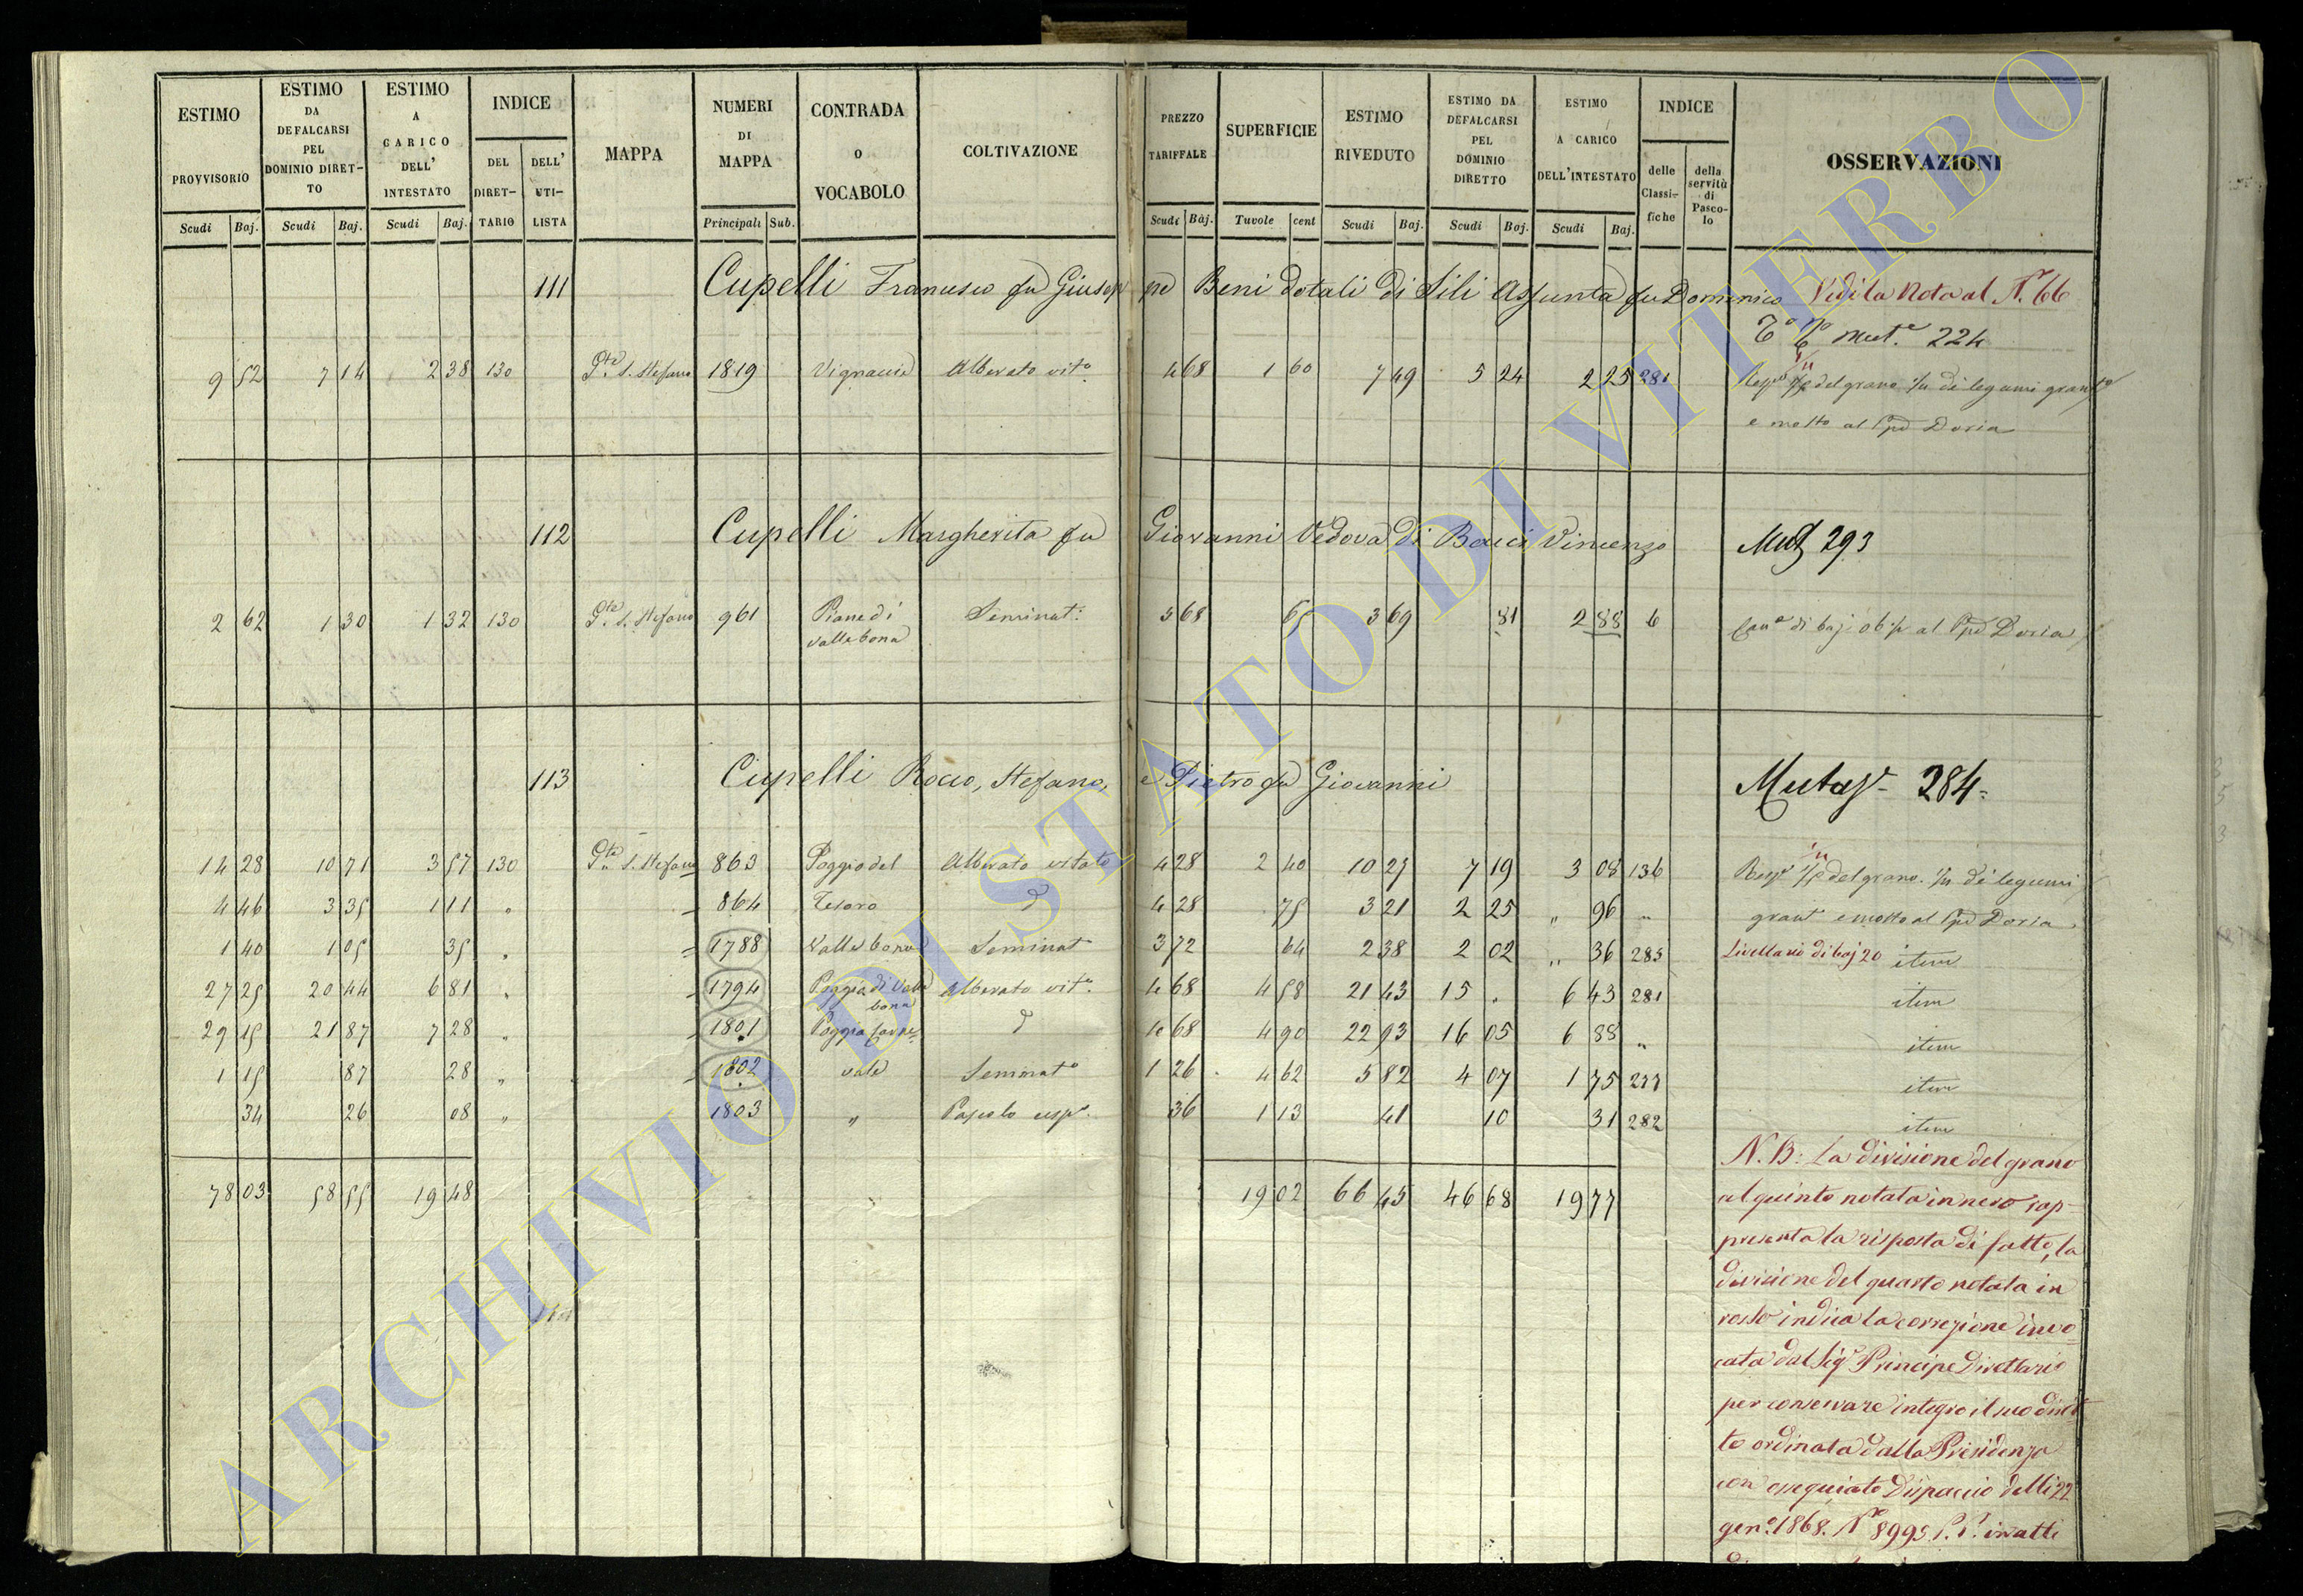 ESTIMO PROVVISORIO
ESTIMO DA DEFALCARSI PEL DOMINIO DIRETTO
ESTIMO A CARICO DELL' INTESTATO
INDICE
DEL DIRETTARIO
DELL' UTILISTA
MAPPA
NUMERI DI MAPPA
CONTRADA O VOCABOLO
COLTIVAZIONE
PREZZO TARIFFALE
SUPERFICIE
ESTIMO RIVEDUTO
ESTIMO DA DEFALCARSI PEL DOMINIO DIRETTO
ESTIMO A CARICO DELL'INTESTATO
INDICE
delle Classifiche
della servitù di Pascolo
OSSERVAZIONI
Scudi Baj. Scudi Baj. Scudi Baj. Principali Sub. Scudi Baj. Tavole cent Scudi Baj. Scudi Baj. Scudi Baj.
111 Cupelli Francesco fu Giuseppe Beni dotali di Lili Assunta fu Domenico Vedi la Nota al N.° 66
Mut.e 224
9 52 7 14 2 38 130 P.te S. Stefano 1819 Vignaccie Alberato vit.o 4 68 1 60 7 49 5 24 2 25 281 del grano 1/11 di legumi
e mosto al Ppe Doria
112 Cupelli Margherita fu Giovanni Vedova di Bauci Vincenzo Mut 293
2 62 1 30 1 32 130 P.te S. Stefano 961 Piane di Seminat. 5 68 65 3 69 81 2 88 6 di baj al Ppe Doria
Valle bona
113 Cupelli Rocco, Stefano, e Pietro fu Giovanni Mutaz.e 284
14 28 10 71 3 57 130 P.te S. Stefano 863 Poggio del Alberato vitato 4 28 2 40 10 27 7 19 3 08 136 Risp.e del grano 1/11 di legumi
4 46 3 35 1 11 " 864 Tesoro d 4 28 75 3 21 2 25 " 96 " e mosto al Ppe Doria
1 40 1 05 35 " 1788 Valle bona Seminat 3 72 64 2 38 2 02 " 36 285 Livellario di baj 20 item
27 25 20 44 6 81 " 1794 Poggio di Valle Alberato vit.o 4 68 4 58 21 43 15 . 6 43 281 item
bona
29 15 21 87 7 28 " 1801 Poggia d 4 68 4 90 22 93 16 05 6 88 " item
1 15 87 28 " 1802 Seminat.o 1 26 4 62 5 82 4 07 1 75 277 item
34 26 08 " 1803 " Pascolo cesp.o 36 1 13 41 10 31 282 item
78 03 58 55 19 48 19 02 66 45 46 68 19 77
N. B: La divisione del grano
al quinto notata in nero rap-
presenta la risposta di fatto, la
divisione del quarto notata in
rosso indica la correzione invo-
cata dal Sig.r Principe Direttario
per conservare integro il suo dirit-
to ordinata dalla Presidenza
con ossequiato Dispaccio delli 22
gen.o 1868. N.o 8995 P.P. in atti
ARCHIVIO DI STATO DI VITERBO